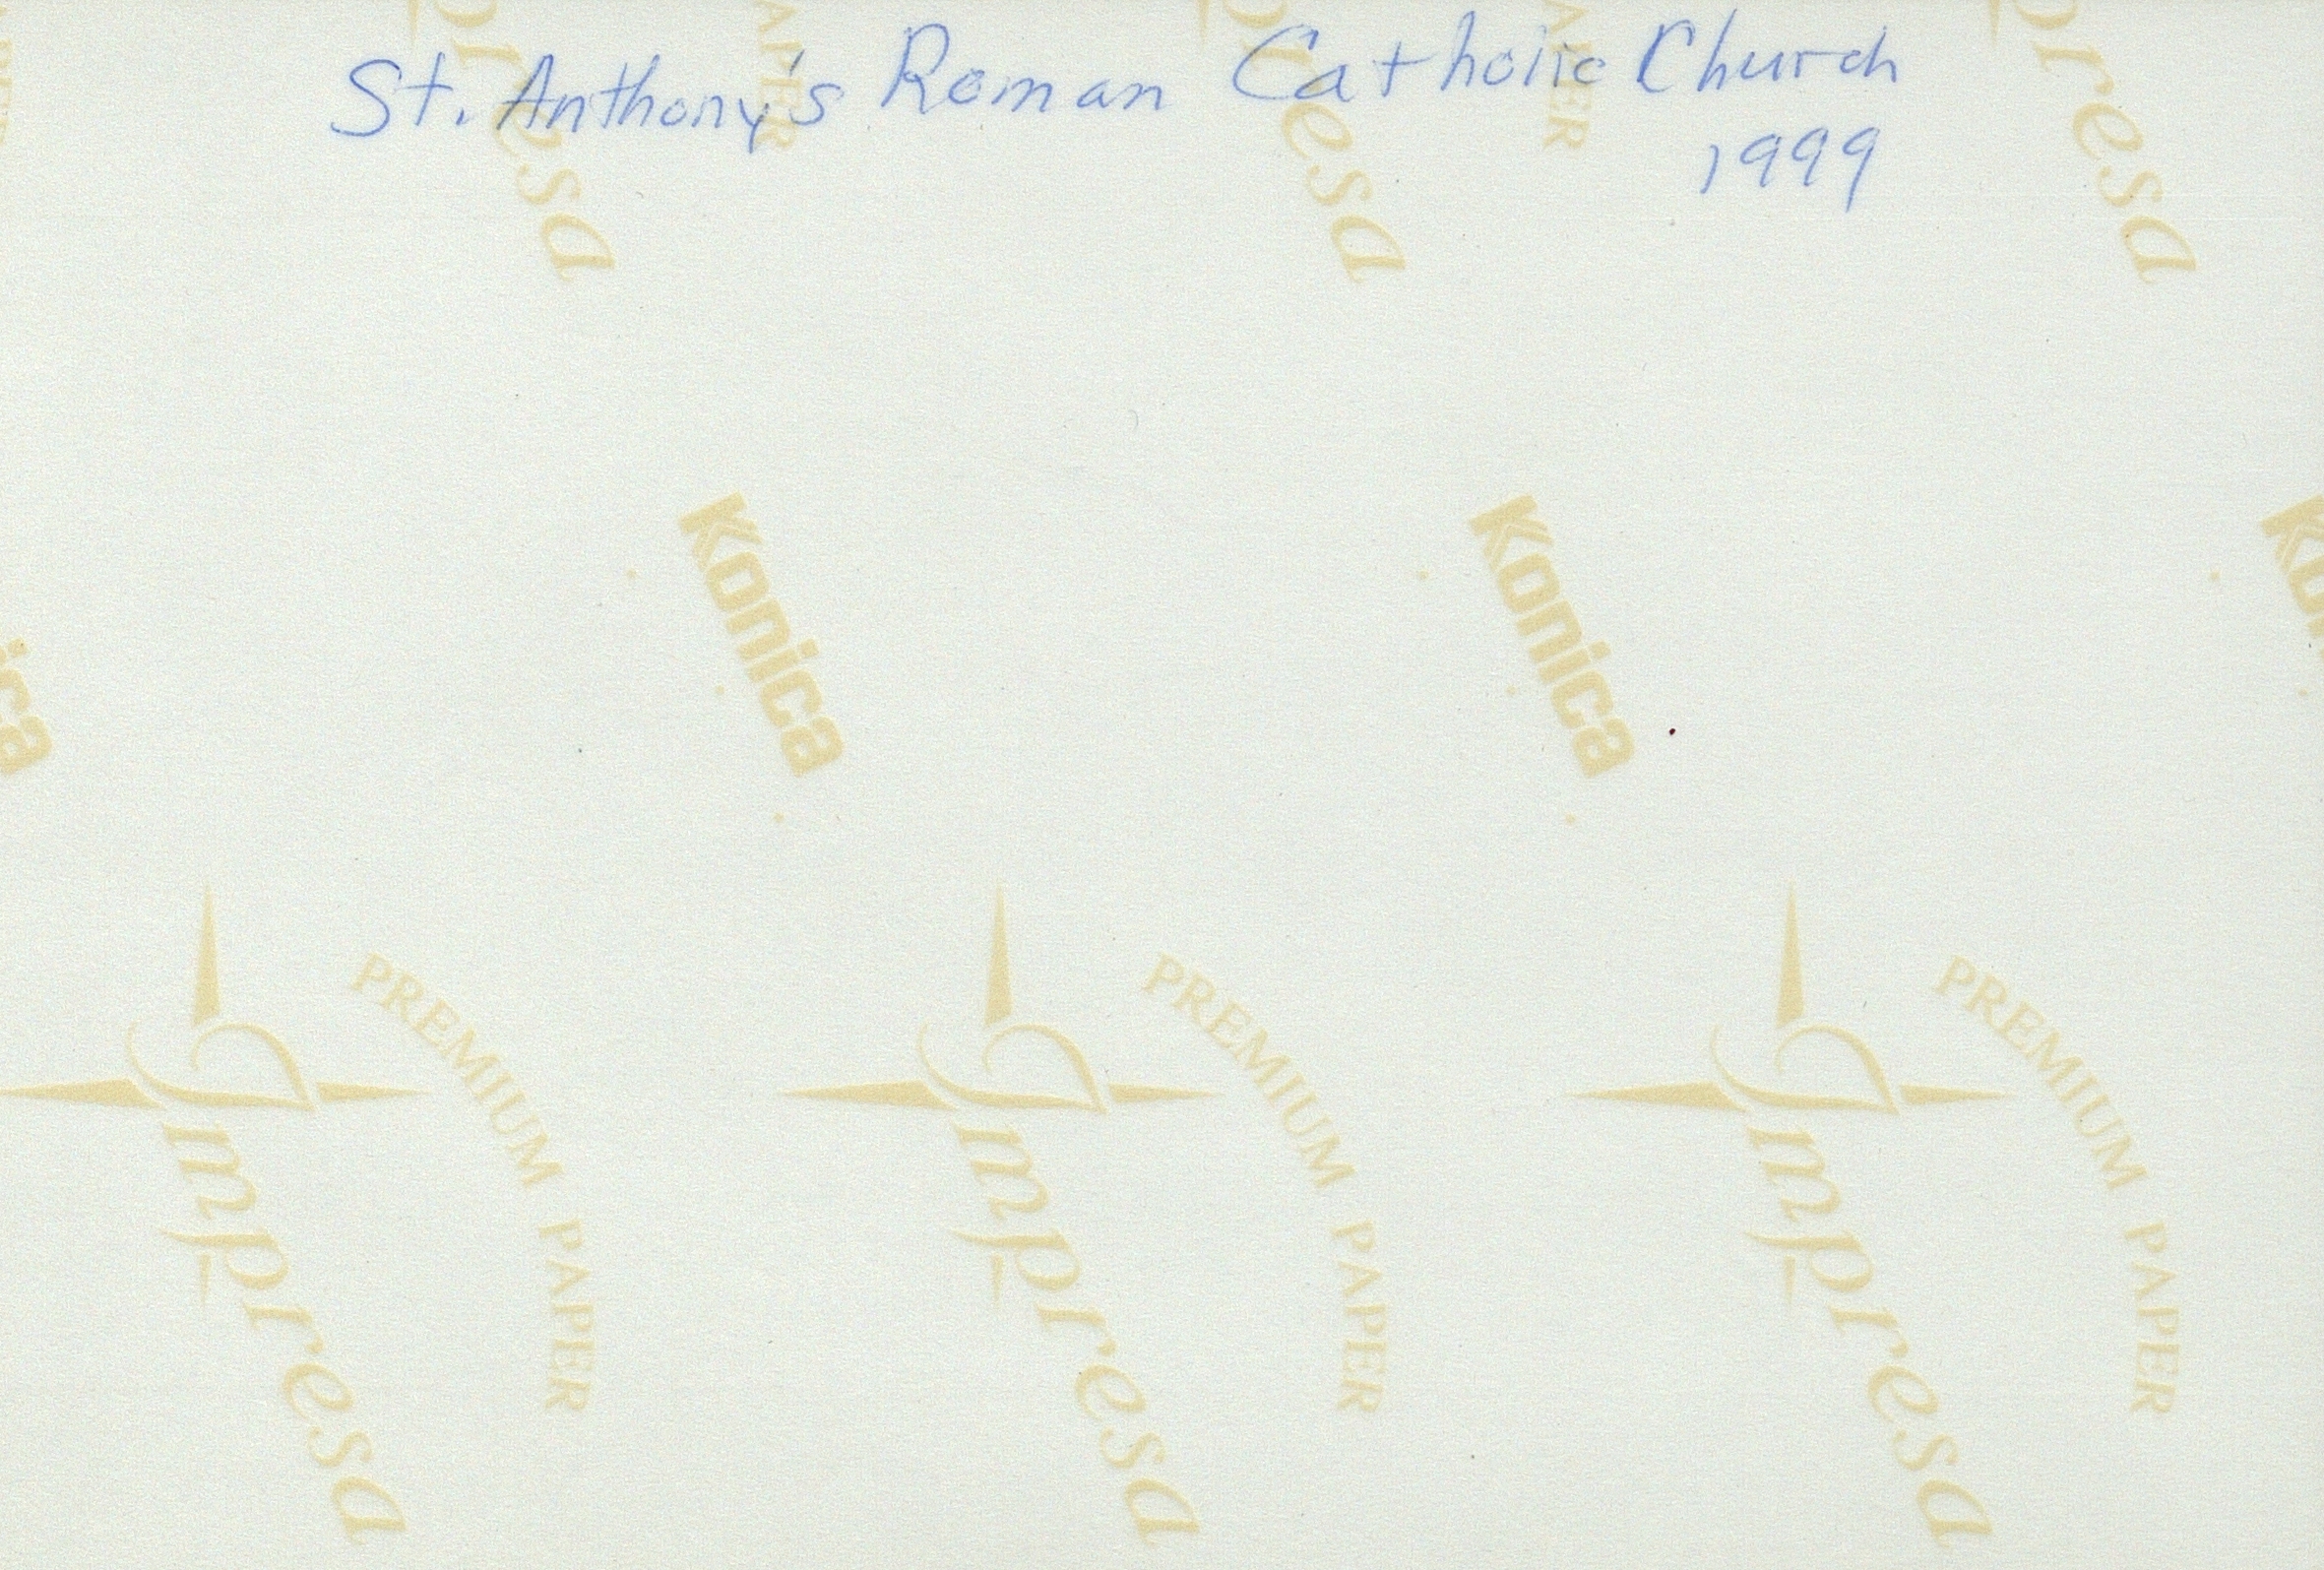 St. Anthony's Roman Catholic Church
1999
presa
presa
presa
APER
APER
Konica
Konica
Impresa
PREMIUM PAPER
Impresa
PREMIUM PAPER
Impresa
PREMIUM PAPER